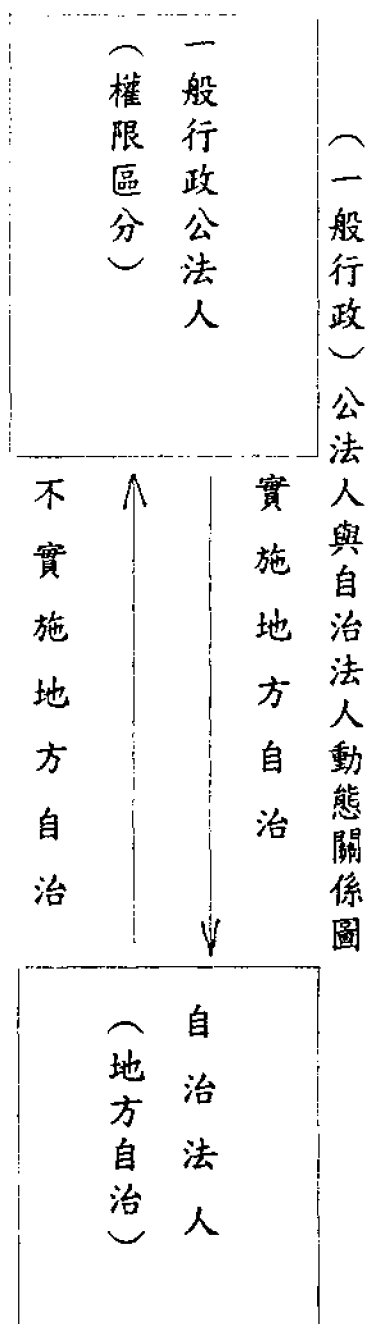 （一般行政）公法人與自治法人動態關係圖
一般行政公法人
（權限區分）
實施地方自治
不實施地方自治
自治法人
（地方自治）